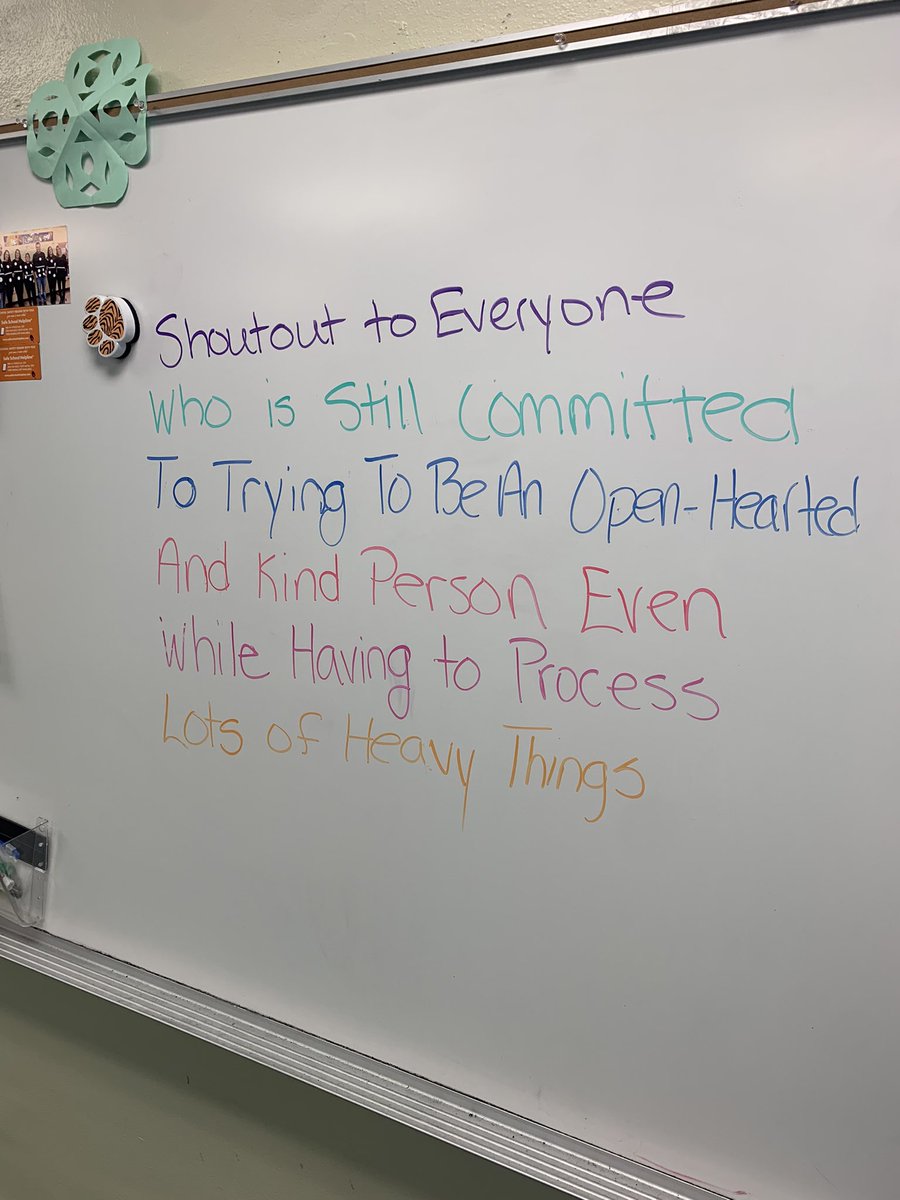 Shoutout to Everyone
Who is Still Committed
To Trying To Be An Open-Hearted
And Kind Person Even
While Having to Process
Lots of Heavy Things
Safe School Helpline
Safe School Helpline